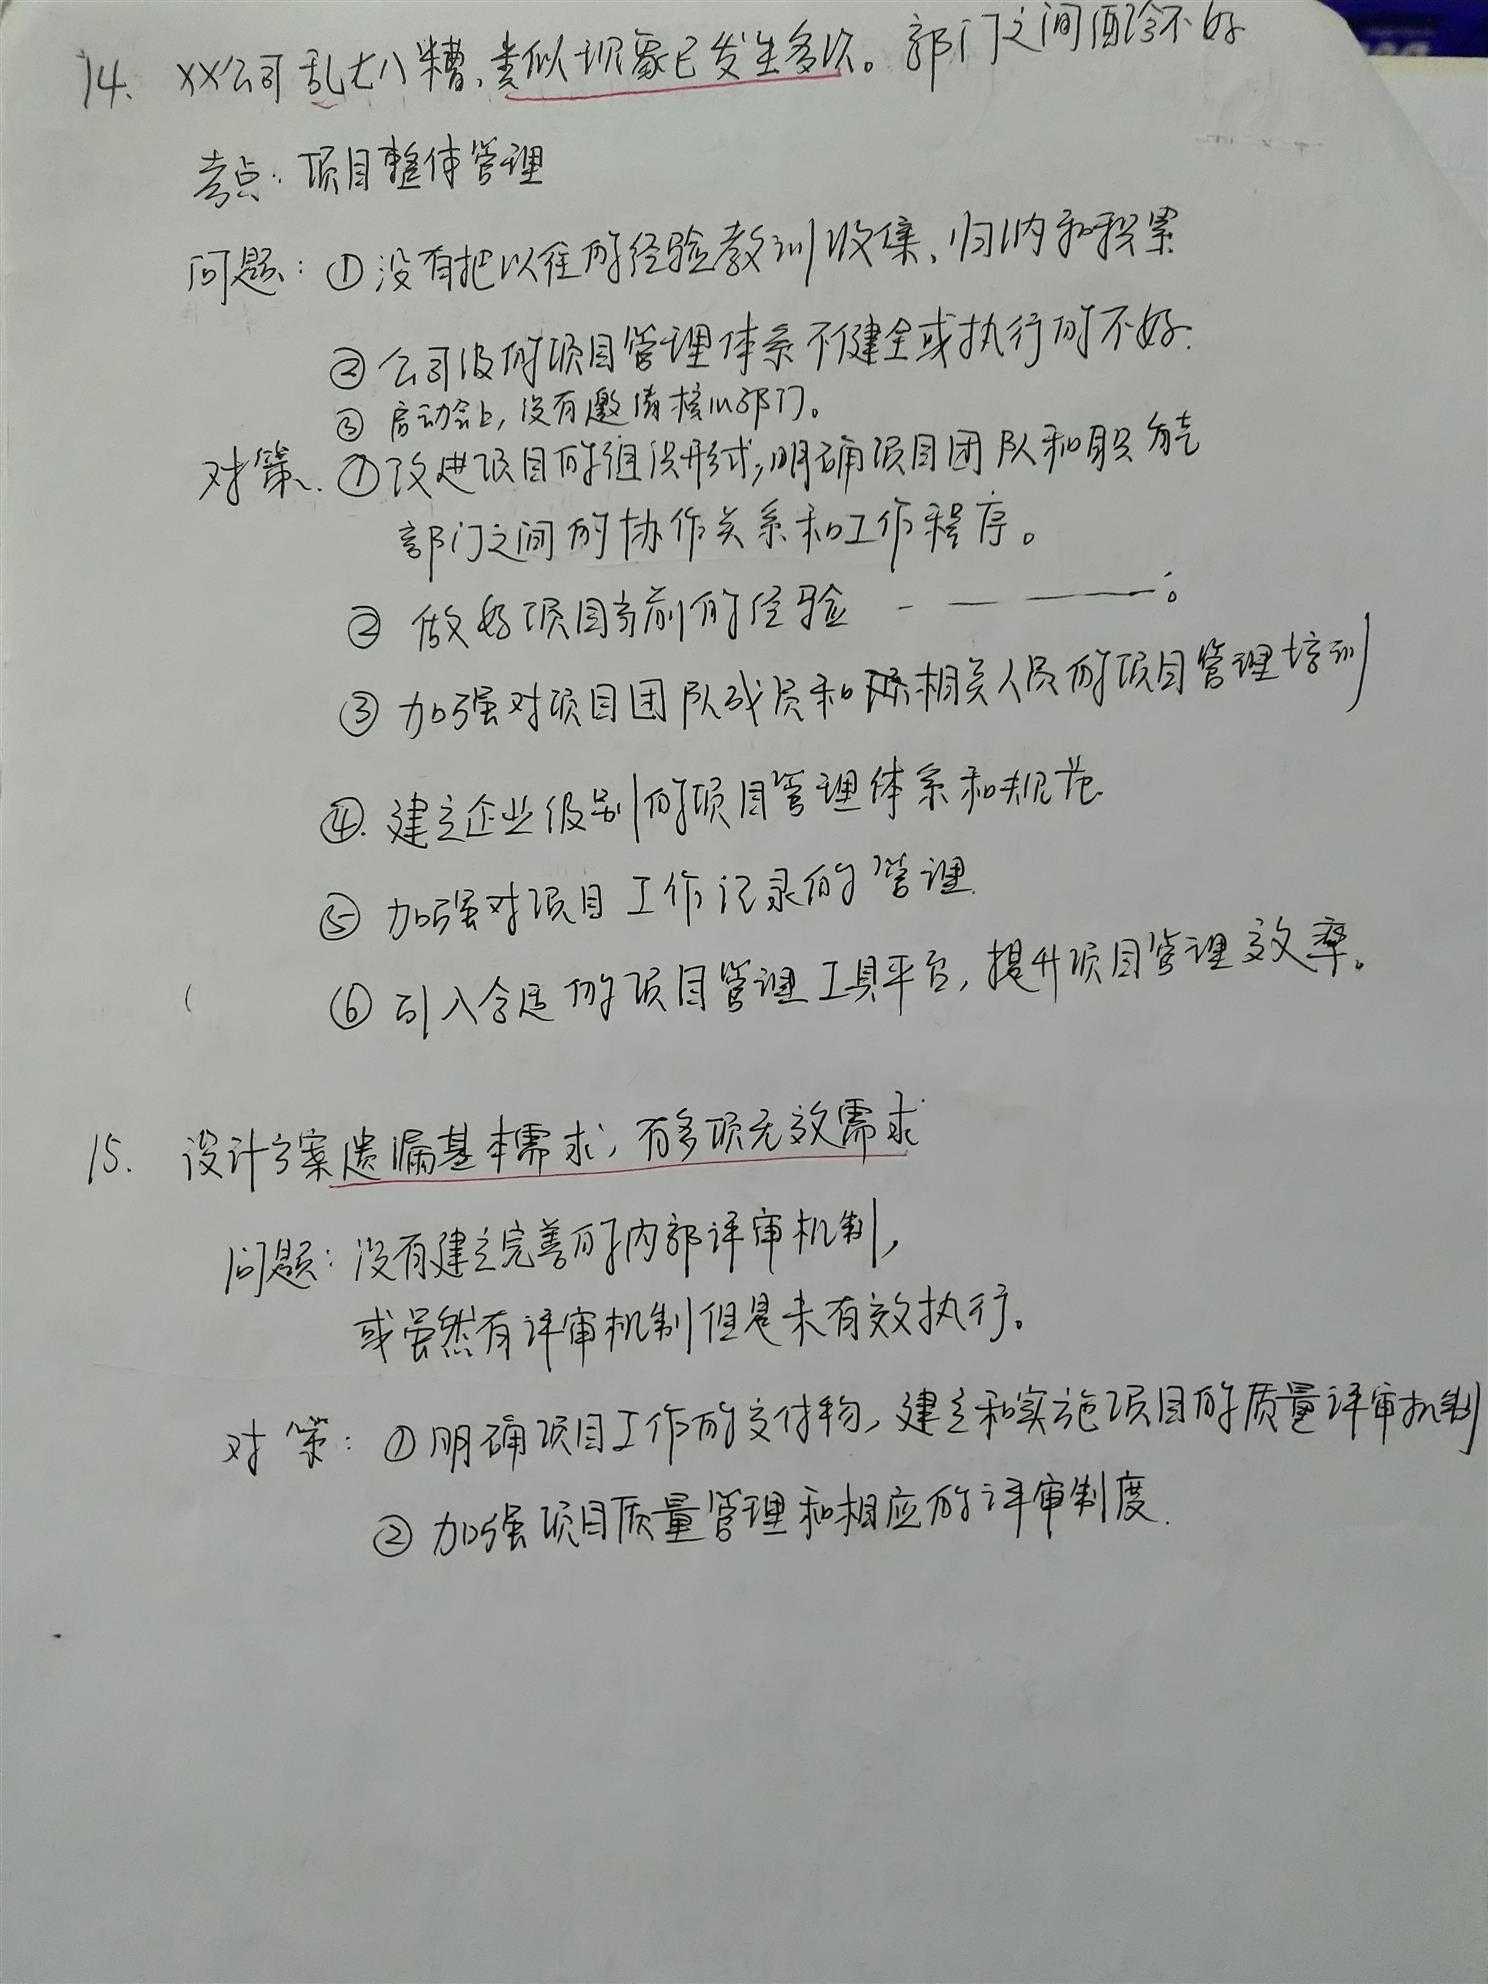 14. XX公司乱七八糟,类似现象已发生多次。部门之间配合不好
考点:项目整体管理
问题:①没有把以往的经验教训收集、归纳和积累
②公司级的项目管理体系不健全或执行的不好.
③启动会上,没有邀请核心部门。
对策.①改进项目的组织形式,明确项目团队和职能
部门之间的协作关系和工作程序。
②做好项目当前的经验 - — ——;
③加强对项目团队成员和相关人员的项目管理培训
④.建立企业级别的项目管理体系和规范.
⑤加强对项目工作记录的管理.
⑥引入合适的项目管理工具平台,提升项目管理效率。
15. 设计方案遗漏基本需求,有多项无效需求
问题:没有建立完善的内部评审机制,
或虽然有评审机制但是未有效执行。
对策:①明确项目工作的交付物,建立和实施项目的质量评审机制
②加强项目质量管理和相应的评审制度.